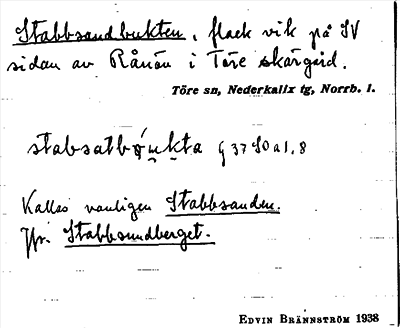 Stabbsandbukten, flack vik på SV
sidan av Rånön i Töre skärgård.
Töre sn, Nederkalix tg, Norrb. l.
stabsatbǿnkta g 37 SO a 1. 8
Kallas vanligen Stabbsanden.
Jfr. Stabbsundberget.
EDVIN BRÄNNSTRÖM 1938